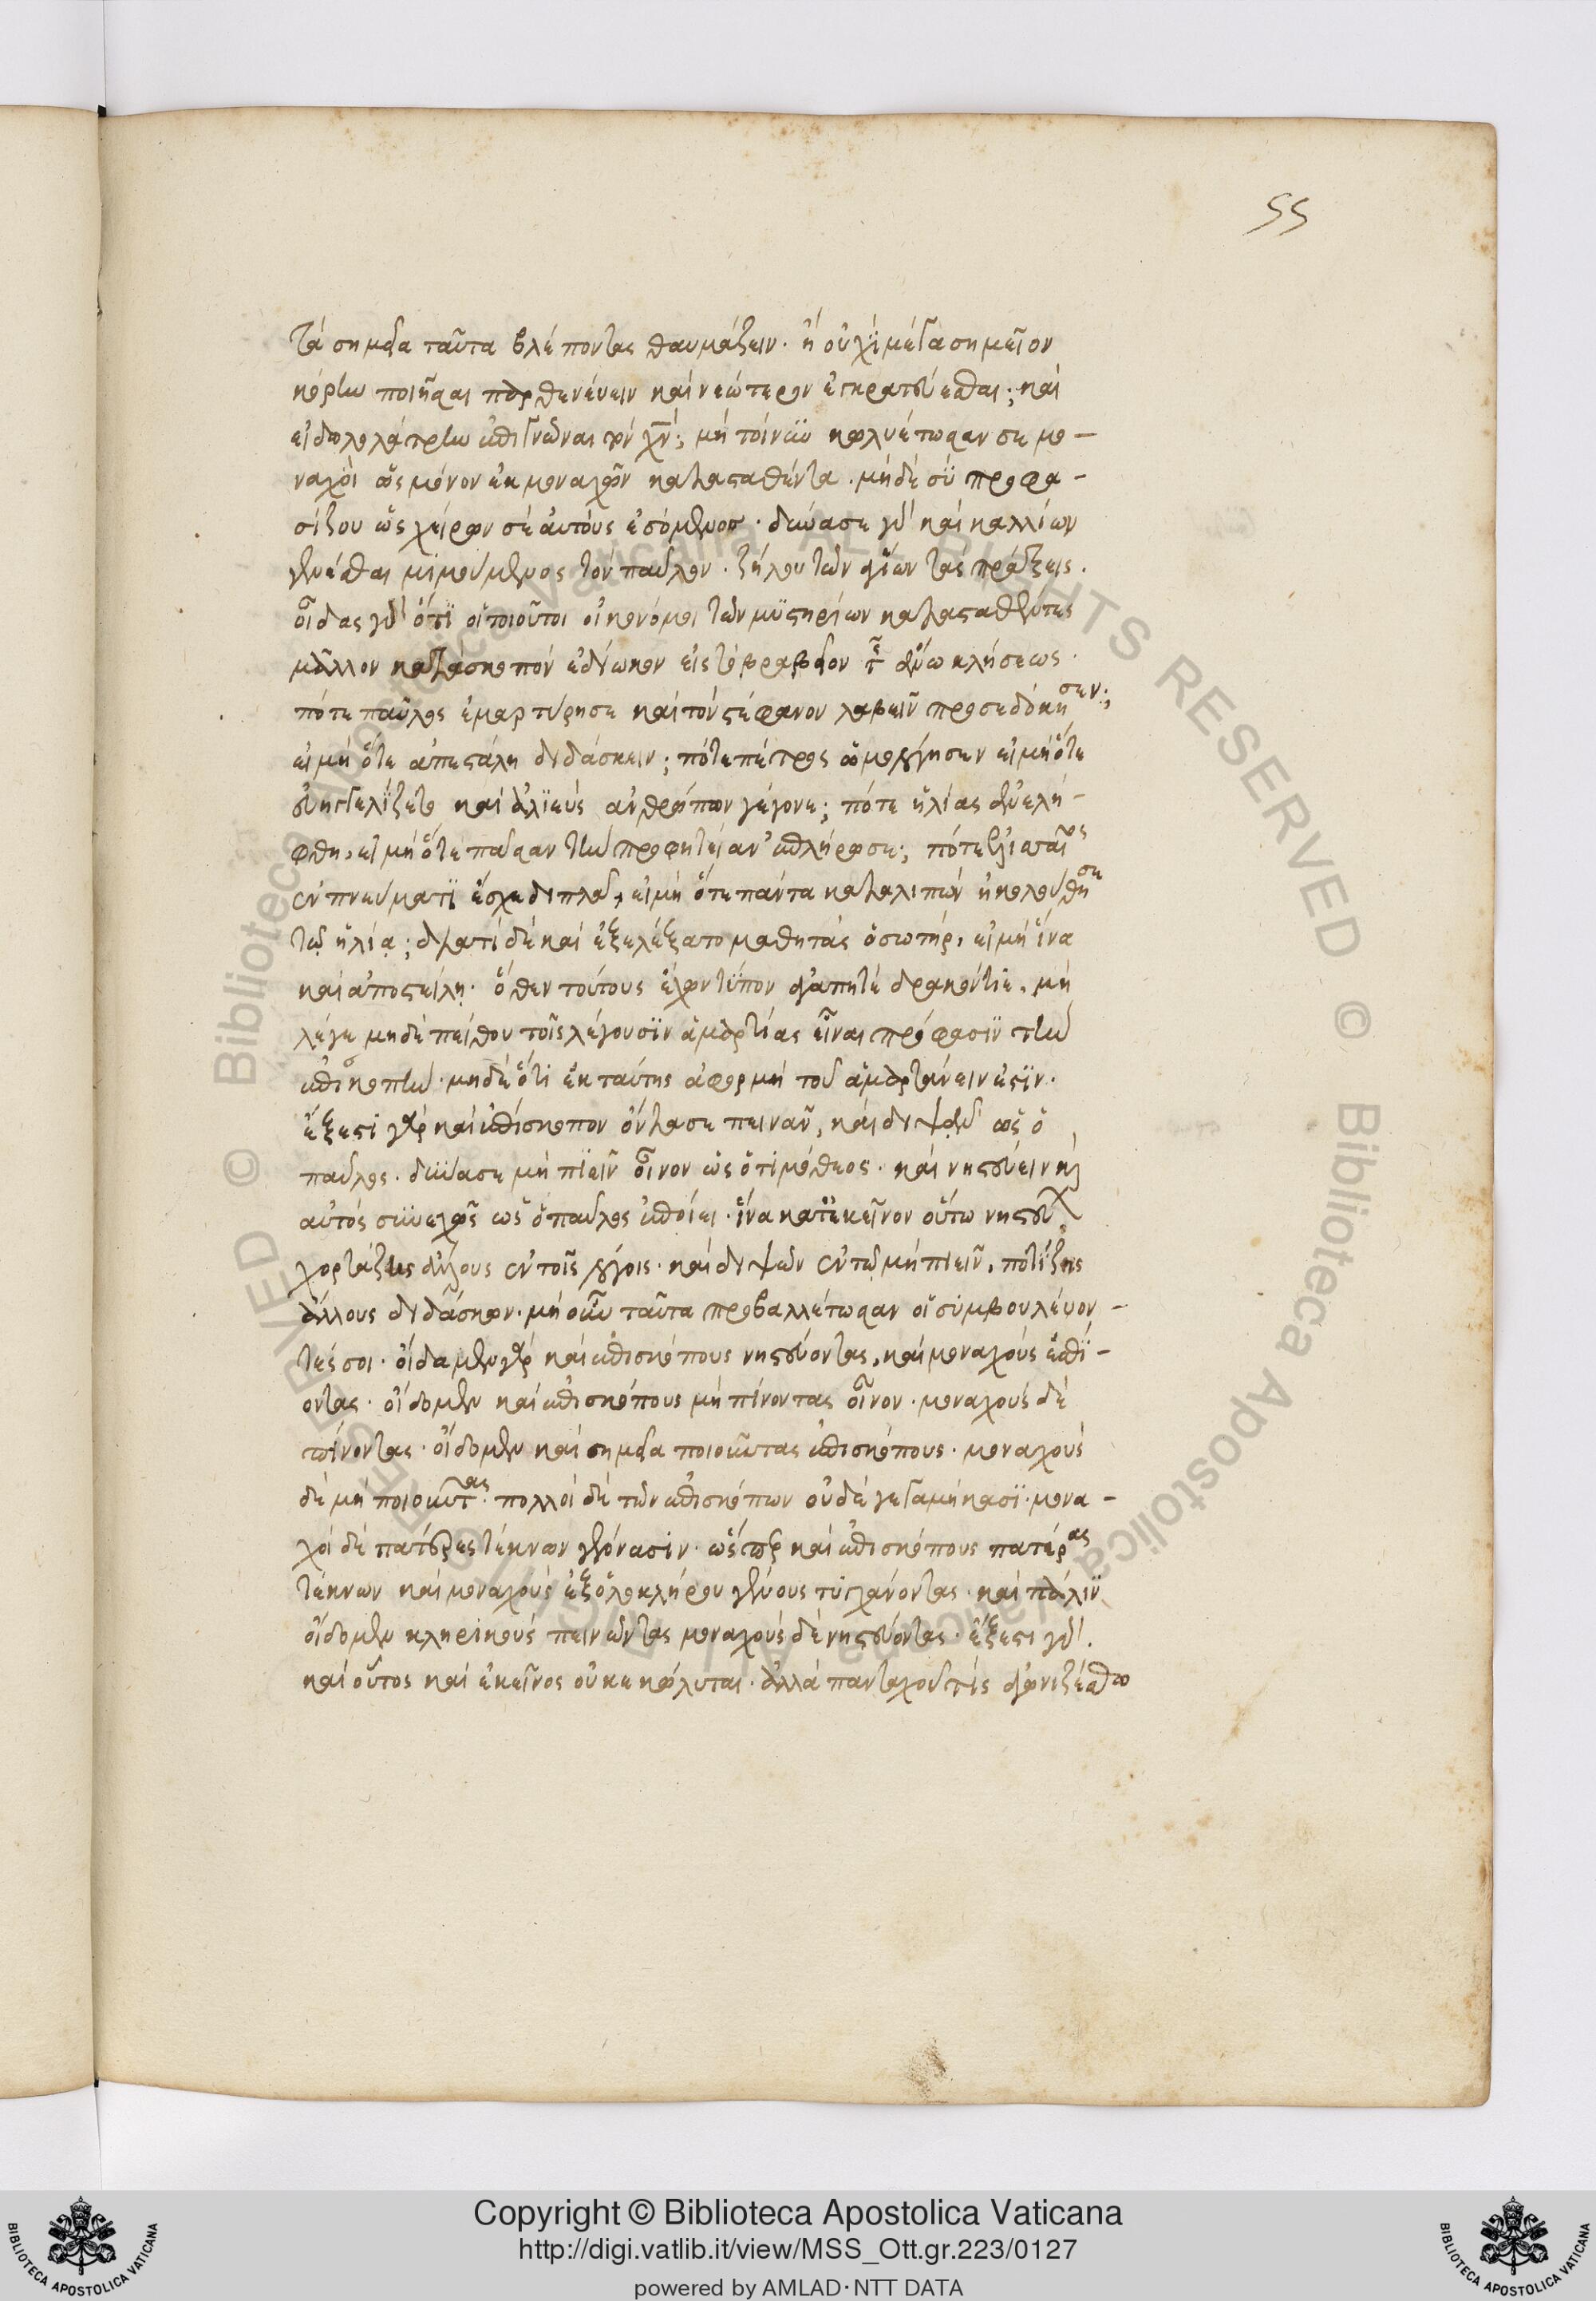 55
τὰ σημεῖα ταῦτα βλέποντας θαυμάζειν· ἢ οὐχὶ μέγα σημεῖον
κόρην ποιῆσαι παρθενεύειν καὶ νεώτερον ἐγκρατεύεσθαι; καὶ
εἰδωλολάτρην ἐπιγνῶναι τὸν χν̅; μὴ τοίνυν κωλυέτωσαν σε μο-
ναχοὶ ὡς μόνον ἐκ μοναχῶν κατασταθέντα· μηδὲ σὺ προφα-
σίζου ὡς χείρων σεαυτοῦ ἐσόμενος· δύνασαι γὰρ καὶ καλλίων
γενέσθαι μιμούμενος τὸν παῦλον· ζήλου τῶν ἁγίων τὰς πράξεις.
οἶδας γὰρ ὅτι οἱ τοιοῦτοι οἰκονόμοι τῶν μυστηρίων κατασταθέντες
μᾶλλον κατὰ σκοπὸν ἐδίωκον εἰς τὸ βραβεῖον τῆς ἄνω κλήσεως·
πότε παῦλος ἐμαρτύρησε καὶ τὸν στέφανον λαβεῖν προσεδόκησεν;
εἰ μὴ ὅτε ἀπεστάλη διδάσκειν; πότε πέτρος ὡμολόγησεν εἰ μὴ ὅτε
εὐηγγελίζετο καὶ ἁλιεὺς ἀνθρώπων γέγονε; πότε ἡλίας ἀνελή-
φθη, εἰ μὴ ὅτε πᾶσαν τὴν προφητείαν ἐπλήρωσε; πότε ἐλισσαῖος
ἐν πνεύματι ἔσχε διπλᾶ, εἰ μὴ ὅτε πάντα καταλιπὼν ἠκολούθησε
τῷ ἡλίᾳ; διατί δὲ καὶ ἐξελέξατο μαθητὰς ὁ σωτὴρ, εἰ μὴ ἵνα
καὶ ἀποστείλῃ· ὅθεν τούτους ἔχων τύπον ἀγαπητὲ δρακόντιε, μὴ
λέγε μηδὲ πείθου τοῖς λέγουσιν ἁμαρτίας εἶναι πρόφασιν τὴν
ἐπισκοπὴν· μηδὲ ὅτι ἐκ ταύτης ἀφορμὴ τοῦ ἁμαρτάνειν ἐστίν·
ἔξεστι γὰρ καὶ ἐπίσκοπον ὄντα σε πεινᾶν, καὶ διψᾶν ὡς ὁ
παῦλος· δύνασαι μὴ πιεῖν οἶνον ὡς ὁ τιμόθεος· καὶ νηστεύειν καὶ
αὐτὸς συνεχῶς ὡς ὁ παῦλος ἐποίει· ἵνα κατ᾽ ἐκεῖνον οὕτω νηστεύων
χορτάζῃς ἄλλους ἐν τοῖς λόγοις· καὶ διψῶν ἐν τῷ μὴ πιεῖν, ποτίζῃς
ἄλλους διδάσκων· μὴ οὖν ταῦτα προβαλλέτωσαν οἱ συμβουλεύον-
τές σοι· οἴδαμεν γὰρ καὶ ἐπισκόπους νηστεύοντας, καὶ μοναχοὺς ἐσθί-
οντας· οἴδαμεν καὶ ἐπισκόπους μὴ πίνοντας οἶνον· μοναχοὺς δὲ
πίνοντας· οἴδαμεν καὶ σημεῖα ποιοῦντας ἐπισκόπους· μοναχοὺς
δὲ μὴ ποιοῦντας· πολλοὶ δὲ τῶν ἐπισκόπων οὐδὲ γεγαμήκασι· μονα-
χοὶ δὲ πατέρες τέκνων γεγόνασιν· ὥσπερ καὶ ἐπισκόπους πατέρας
τέκνων καὶ μοναχοὺς ἐξ ὁλοκλήρου γένους τυγχάνοντας· καὶ πάλιν
οἴδαμεν κληρικοὺς πεινῶντας μοναχοὺς δὲ νηστεύοντας· ἔξεστι γὰρ.
καὶ οὗτος καὶ ἐκεῖνος οὐ κεκώλυται· ἀλλὰ πανταχοῦ τὶς ἀγωνιζέσθω
Copyright © Biblioteca Apostolica Vaticana
http://digi.vatlib.it/view/MSS_Ott.gr.223/0127
powered by AMLAD·NTT DATA